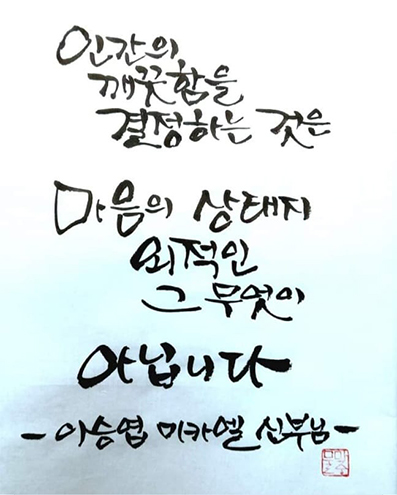 인간의
깨끗함을
결정하는 것은
마음의 상태지
외적인
그 무엇이
아닙니다
- 이승엽 미카엘 신부님 -